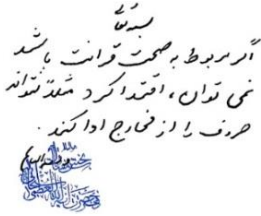 بسمه تعالی
اگر مربوط به صحت قرائت باشد
نمی توان، اقتدا کرد مثلاً نتواند
حروف را از مخارج ادا کند.